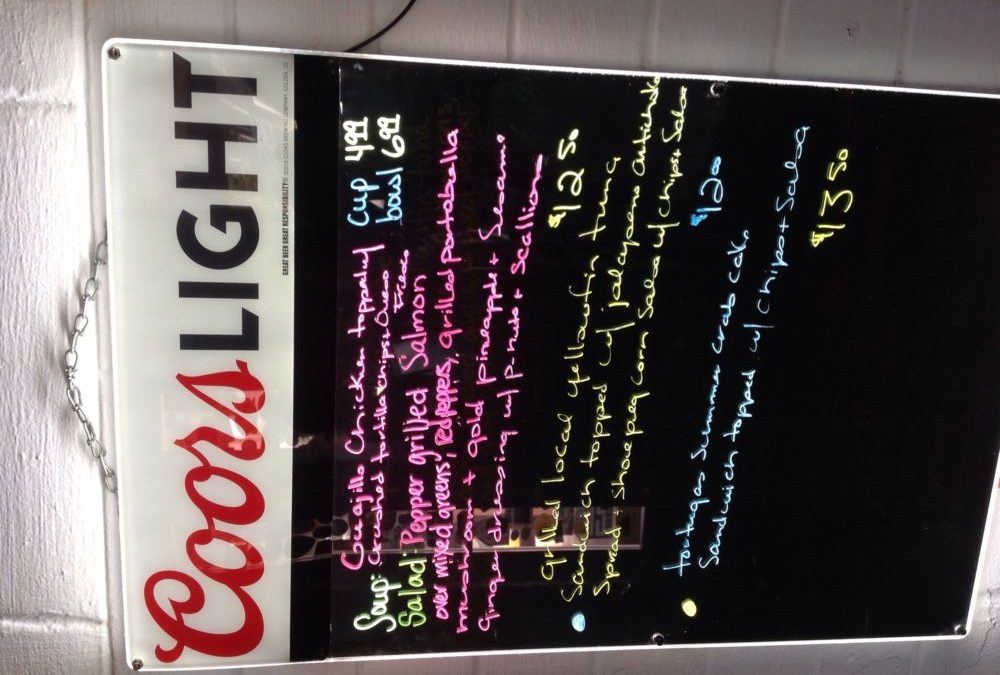 Coors LIGHT
GREAT BEER GREAT RESPONSIBILITY®
Soup: Guajillo Chicken topped w/ Cup 499
Crushed tortilla chips + Queso bowl 699
Fresco
Salad: Pepper grilled Salmon
over mixed greens, red peppers, grilled portabella
mushroom + gold pineapple + Sesame
Ginger dressing w/ p-nuts + Scallions
$1250
grilled local yellowfin tuna
Sandwich topped w/ jalapeno Artichoke
Spread + shoepeg corn Salsa w/ chips + Salsa
$1200
tortugas Summer crab cake
Sandwich topped w/ chips + Salsa
$1350